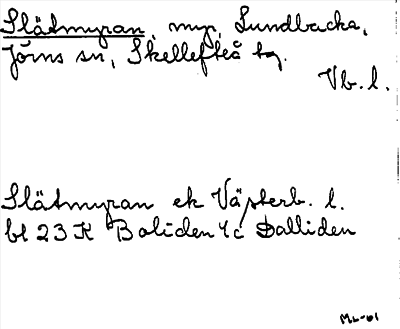 Slätmyran, myr, Lundbacka,
Jörns sn, Skellefteå tg.
Vb. l.
Slätmyran ek Västerb. l.
bl 23 K Boliden 4c Dalliden
ML-61